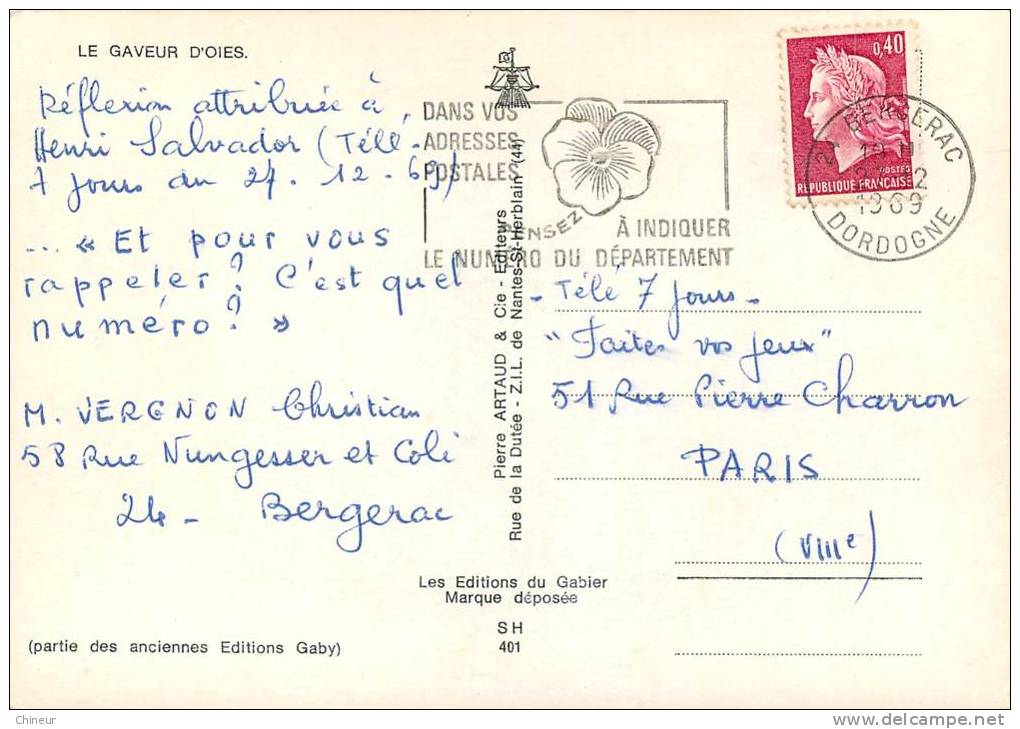 LE GAVEUR D'OIES.
Réflexion attribuée à
Henri Salvador (Télé-
7 Jours du 27. 12-69)
... « Et pour vous
rappeler? C'est quel
numéro? »
M. VERGNON Christian
58 Rue Nungesser et Coli
24 - Bergerac
(partie des anciennes Editions Gaby)
DANS VOS
ADRESSES
POSTALES
PENSEZ
À INDIQUER
LE NUMÉRO DU DÉPARTEMENT
Pierre ARTAUD & Cie - Editeurs
Rue de la Dutée - Z.I.L. de Nantes-St-Herblain (44)
Les Editions du Gabier
Marque déposée
SH
401
0,40
POSTES
REPUBLIQUE FRANÇAISE
BERGERAC
1969
DORDOGNE
- Télé 7 Jours -
"Faites vos jeux"
51 Rue Pierre Charron
PARIS
(VIIIe)
Chineur
delcampe.net